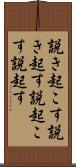 説き起こす説
き起す説起こ
す説起す